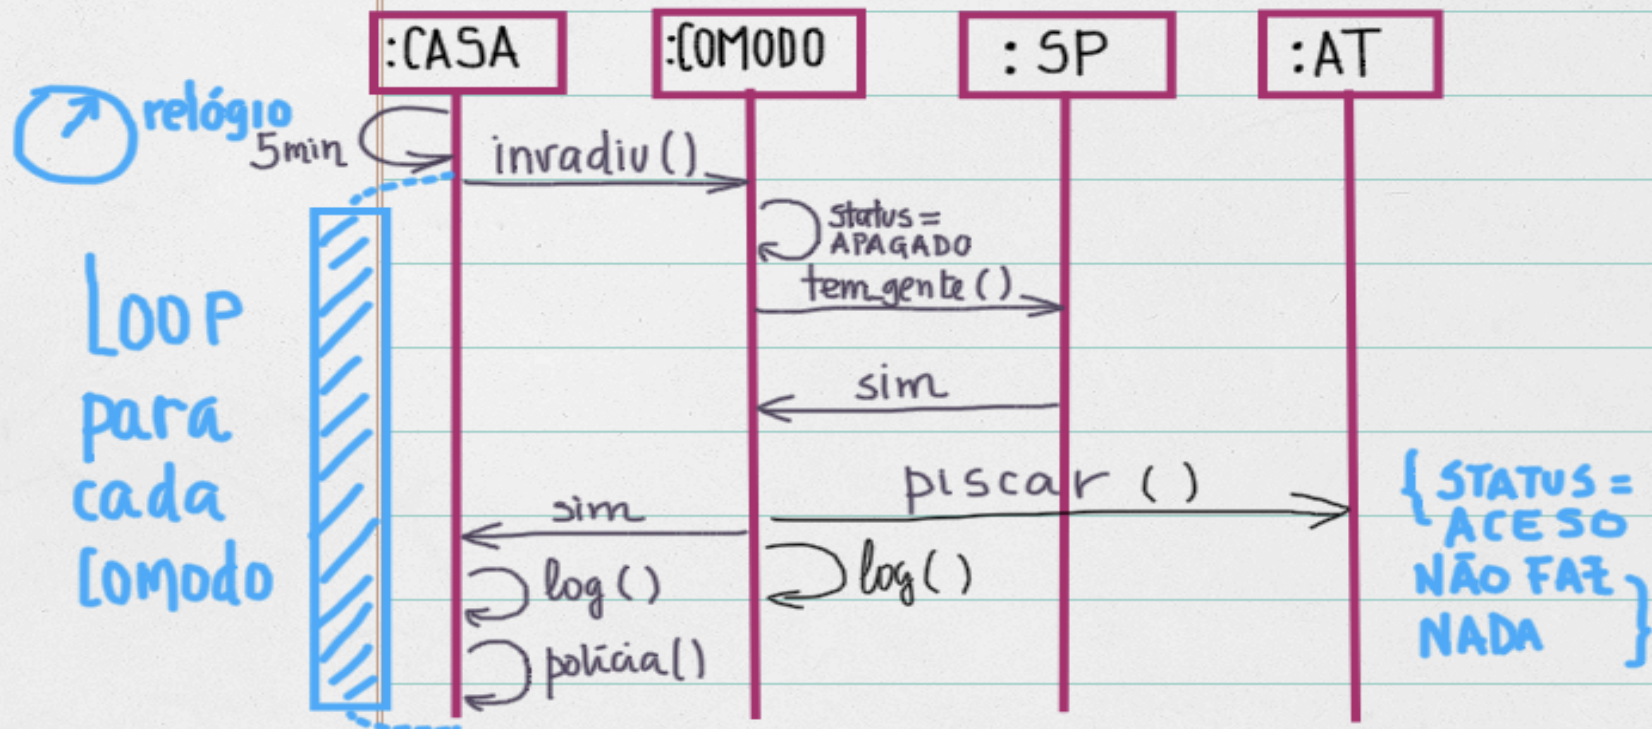 :CASA
:COMODO
: SP
:AT
relógio
5min
invadiu()
status =
APAGADO
tem_gente()
sim
piscar ()
sim
log()
log()
polícia()
LOOP
para
cada
comodo
{ STATUS =
ACESO
NÃO FAZ
NADA }